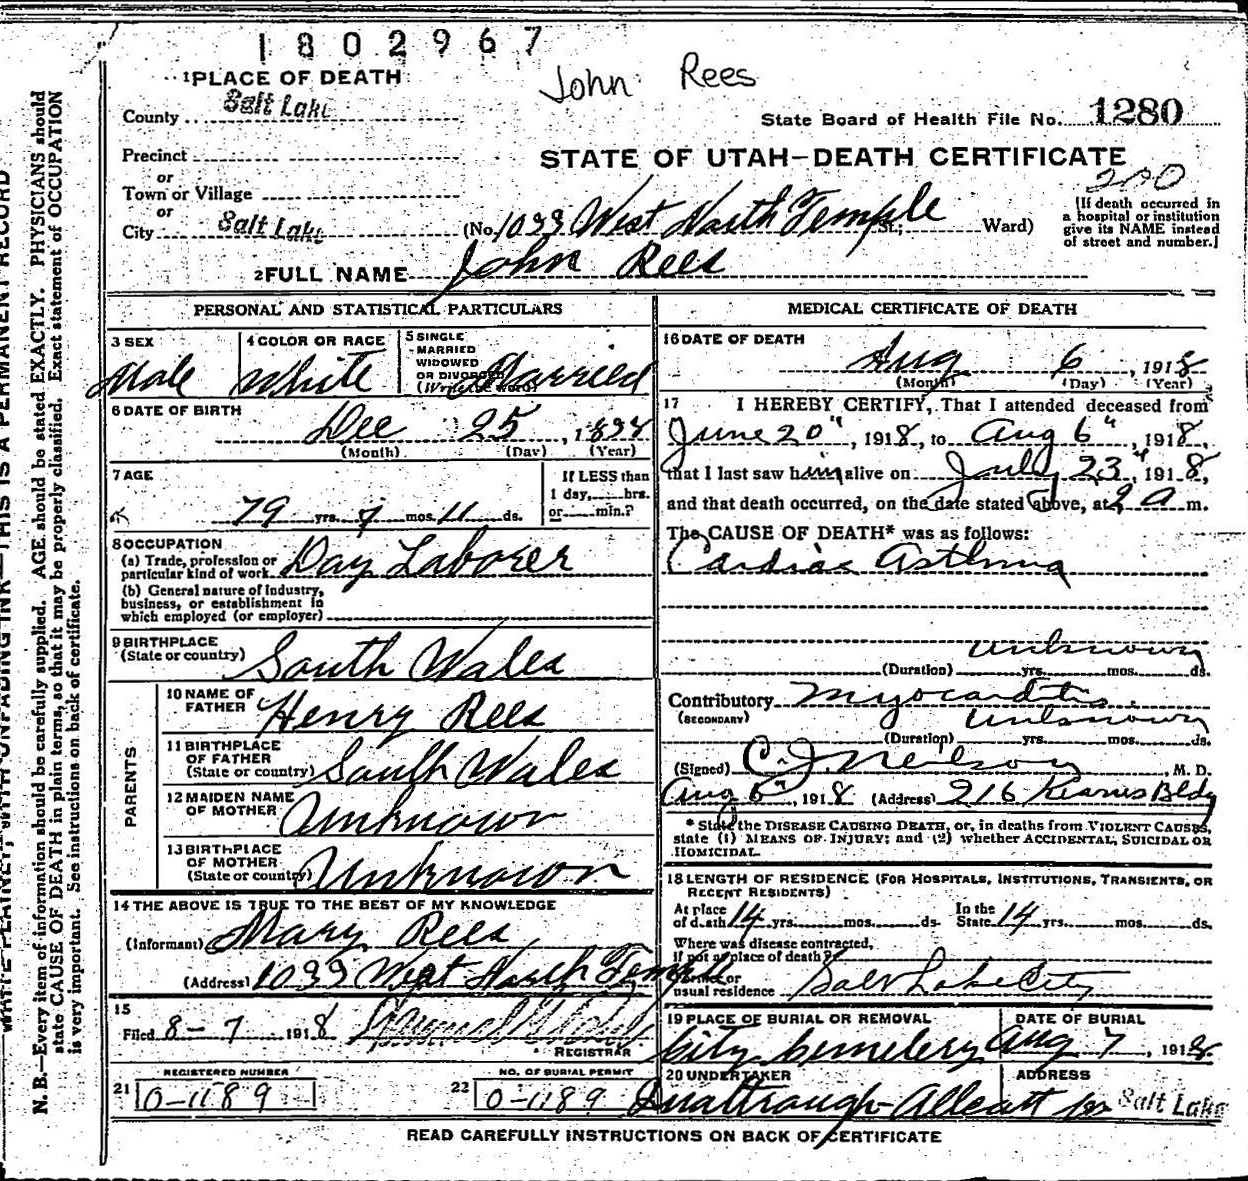 1802967
John Rees
1 PLACE OF DEATH
County Salt Lake
State Board of Health File No. 1280
Precinct
or
STATE OF UTAH—DEATH CERTIFICATE
Town or Village
or
200
City Salt Lake (No. 1033 West North Temple St.; Ward)
[If death occurred in
a hospital or institution
give its NAME instead
of street and number.]
2 FULL NAME John Rees
PERSONAL AND STATISTICAL PARTICULARS
3 SEX
Male
4 COLOR OR RACE
White
5 SINGLE
MARRIED
WIDOWED
OR DIVORCED
(Write the word)
Married
6 DATE OF BIRTH
Dec 25, 1838
(Month) (Day) (Year)
7 AGE
79 yrs. 7 mos. 11 ds.
If LESS than
1 day, hrs.
or min.?
8 OCCUPATION
(a) Trade, profession or
particular kind of work Day Laborer
(b) General nature of industry,
business, or establishment in
which employed (or employer)
9 BIRTHPLACE
(State or country) South Wales
PARENTS
10 NAME OF
FATHER Henry Rees
11 BIRTHPLACE
OF FATHER
(State or country) South Wales
12 MAIDEN NAME
OF MOTHER Unknown
13 BIRTHPLACE
OF MOTHER
(State or country) Unknown
14 THE ABOVE IS TRUE TO THE BEST OF MY KNOWLEDGE
(Informant) Mary Rees
(Address) 1033 West North Temple
15
Filed 8-7 1918
REGISTRAR
REGISTERED NUMBER
21 0-1189
NO. OF BURIAL PERMIT
22 0-1189
MEDICAL CERTIFICATE OF DEATH
16 DATE OF DEATH
Aug 6, 1918
(Month) (Day) (Year)
17 I HEREBY CERTIFY, That I attended deceased from
June 20", 1918, to Aug 6", 1918,
that I last saw him alive on July 23" 1918,
and that death occurred, on the date stated above, at 2 a m.
The CAUSE OF DEATH* was as follows:
Cardiac Asthma
unknown
(Duration) yrs. mos. ds.
Contributory Myocarditis.
(SECONDARY)
unknown
(Duration) yrs. mos. ds.
(Signed) C. J. Neilson, M. D.
Aug 6", 1918 (Address) 216 Kearns Bldg
* State the DISEASE CAUSING DEATH, or, in deaths from VIOLENT CAUSES,
state (1) MEANS OF INJURY; and (2) whether ACCIDENTAL, SUICIDAL OR
HOMICIDAL.
18 LENGTH OF RESIDENCE (FOR HOSPITALS, INSTITUTIONS, TRANSIENTS, OR
RECENT RESIDENTS)
At place
of death 14 yrs. mos. ds.
In the
State 14 yrs. mos. ds.
Where was disease contracted,
if not at place of death?
Former or
usual residence Salt Lake City
19 PLACE OF BURIAL OR REMOVAL
City Cemetery
DATE OF BURIAL
Aug 7, 1918
20 UNDERTAKER
ADDRESS
Salt Lake
READ CAREFULLY INSTRUCTIONS ON BACK OF CERTIFICATE
THIS IS A PERMANENT RECORD
N. B.—Every item of information should be carefully supplied. AGE should be stated EXACTLY. PHYSICIANS should
state CAUSE OF DEATH in plain terms, so that it may be properly classified. Exact statement of OCCUPATION
is very important. See instructions on back of certificate.